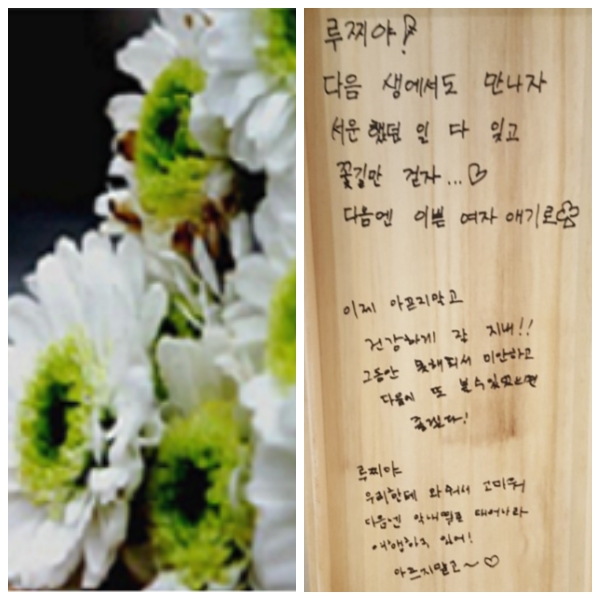 루찌야!
다음 생에서도 만나자
서운했던 일 다 잊고
꽃길만 걷자...♡
다음엔 이쁜 여자 애기로
이제 아픈지말고
건강하게 잘 지내!!
그동안 못해줘서 미안하고
다음에 또 볼수있었으면
좋겠다!
루찌야
우리한테 와줘서 고마워
다음엔 막내딸로 태어나라
여행하고 있어!
아프지말고~♡